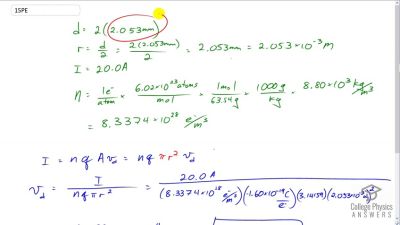 15PE
d = 2(2.053mm)
r = d/2 = 2(2.053mm)/2 = 2.053mm = 2.053×10⁻³m
I = 20.0A
n = 1e⁻/atom × 6.02×10²³atoms/mol × 1mol/63.54g × 1000g/kg × 8.80×10³ kg/m³
= 8.3374×10²⁸ e⁻/m³
I = nqAv_d = nqπr²v_d
v_d = I/nqπr² = 20.0A/(8.3374×10²⁸ e⁻/m³)(1.60×10⁻¹⁹C/e⁻)(3.14159)(2.053×10⁻³
College Physics
ANSWERS